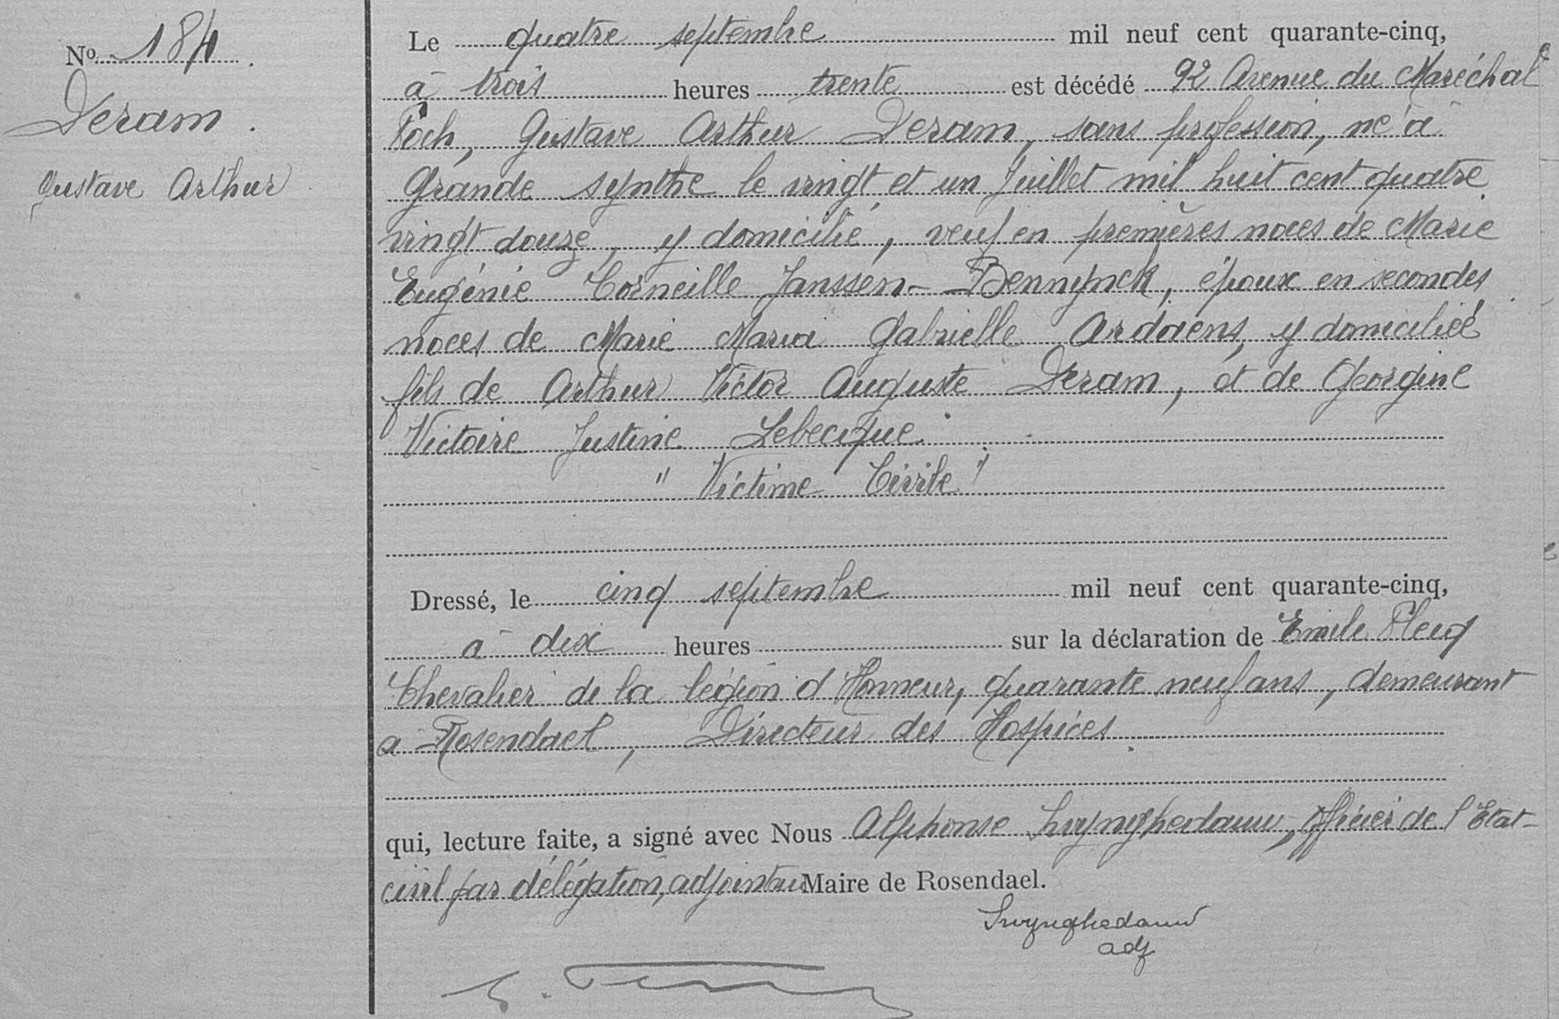 N° 184
Deram.
Gustave Arthur
Le quatre septembre mil neuf cent quarante-cinq,
à trois heures trente est décédé 92 Avenue du Maréchal
Foch, Gustave Arthur Deram, sans profession, né à
Grande Synthe le vingt et un Juillet mil huit cent quatre
vingt douze, y domicilié, veuf en premières noces de Marie
Eugénie Corneille Janssen-Bennynck, époux en secondes
noces de Marie Maria Gabrielle Ardaens, y domiciliée
fils de Arthur Victor Auguste Deram, et de Georgine
Victoire Justine Lebecque.
" Victime Civile "
Dressé, le cinq septembre mil neuf cent quarante-cinq,
à dix heures sur la déclaration de Emile
Chevalier de la légion d'Honneur, quarante neuf ans, demeurant
à Rosendael, Directeur des Hospices.
qui, lecture faite, a signé avec Nous Alphonse Swynghedauw, officier de l'Etat-
civil par délégation, adjoint au Maire de Rosendael.
Swynghedauw
adj